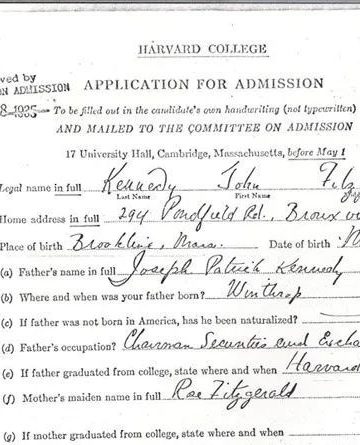 HARVARD COLLEGE
ved by
ON ADMISSION
APPLICATION FOR ADMISSION
8-1935
To be filled out in the candidate's own handwriting (not typewritten)
AND MAILED TO THE COMMITTEE ON ADMISSION
17 University Hall, Cambridge, Massachusetts, before May 1
Legal name in full Kennedy John Fitz
Last Name First Name
Home address in full 294 Pondfield Rd., Bronx
Place of birth Brookline, Mass. Date of birth M
(a) Father's name in full Joseph Patrick Kennedy
(b) Where and when was your father born? Winthrop
(c) If father was not born in America, has he been naturalized?
(d) Father's occupation? Chairman Securities and Excha
(e) If father graduated from college, state where and when Harvard
(f) Mother's maiden name in full Rose Fitzgerald
(g) If mother graduated from college, state where and when